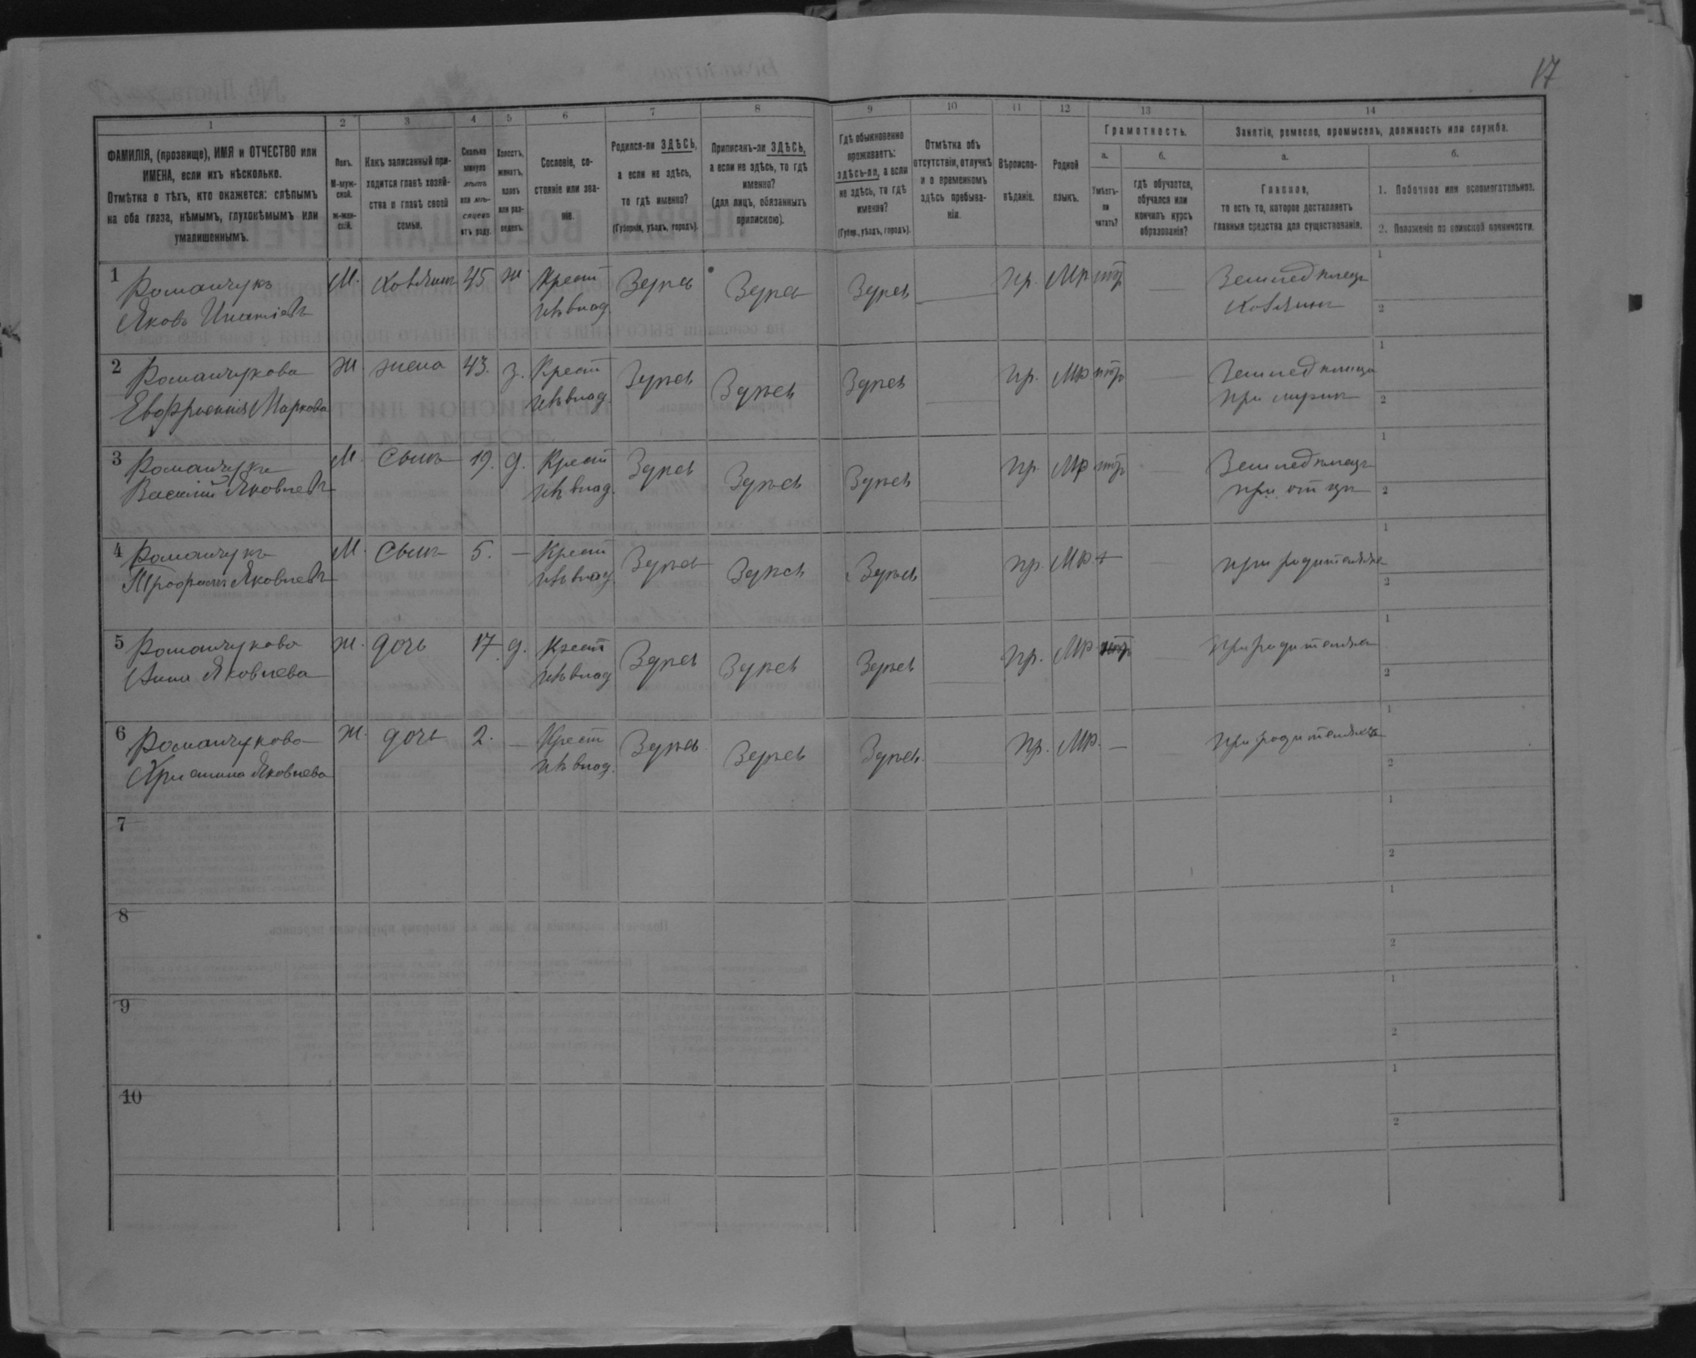 17
1
2
3
4
5
6
7
8
9
10
11
12
13
14
ФАМИЛІЯ, (прозвище), ИМЯ и ОТЧЕСТВО или
ИМЕНА, если ихъ нѣсколько.
Отмѣтка о тѣхъ, кто окажется: слѣпымъ
на оба глаза, нѣмымъ, глухонѣмымъ или
умалишеннымъ.
Полъ.
М-муж-
ской.
Ж-жен-
скій.
Какъ записанный при-
ходится главѣ хозяй-
ства и главѣ своей
семьи.
Сколько
минуло
лѣтъ
или мѣ-
сяцевъ
отъ роду.
Холостъ,
женатъ,
вдовъ
или раз-
веденъ.
Сословіе, со-
стояніе или зва-
ніе.
Родился-ли ЗДѢСЬ,
а если не здѣсь,
то гдѣ именно?
(Губернія, уѣздъ, городъ).
Приписанъ-ли ЗДѢСЬ,
а если не здѣсь, то гдѣ
именно?
(для лицъ, обязанныхъ
припискою).
Гдѣ обыкновенно
проживаетъ:
здѣсь-ли, а если
не здѣсь, то гдѣ
именно?
(Губер., уѣздъ, городъ).
Отмѣтка объ
отсутствіи, отлучкѣ
и о временномъ
здѣсь пребыва-
ніи.
Вѣроиспо-
вѣданіе.
Родной
языкъ.
Грамотность.
а.
б.
Умѣетъ-
ли
читать?
гдѣ обучается,
обучался или
кончилъ курсъ
образованія?
Занятіе, ремесло, промыселъ, должность или служба.
а.
б.
Главное,
то есть то, которое доставляетъ
главныя средства для существованія.
1. Побочное или вспомогательное.
2. Положеніе по воинской повинности.
1 Романчукъ М. хозяинъ 45 ж Крест Здѣсь Здѣсь Здѣсь пр. Мр Земледѣлецъ 1
Яковъ Игнатіевъ хозяинъ 2
2 Романчукова ж жена 43. з. Крест Здѣсь Здѣсь Здѣсь пр. Мр Земледѣлецъ 1
Евфросинія Маркова при мужѣ 2
3 Романчукъ М. сынъ 19. Крест Здѣсь Здѣсь Здѣсь пр Мр Земледѣлецъ 1
Василій Яковлевъ при отцѣ 2
4 Романчукъ М. сынъ 5. — Крест Здѣсь Здѣсь Здѣсь пр. Мр при родителяхъ 1
Трофимъ Яковлевъ 2
5 Романчукова ж. дочь 17 Крест Здѣсь Здѣсь Здѣсь пр. Мр при родителяхъ 1
Анна Яковлева 2
6 Романчукова ж. дочь 2. — Крест Здѣсь Здѣсь Здѣсь пр. Мр. — при родителяхъ 1
Христина Яковлева 2
7 1
2
8 1
2
9 1
2
10 1
2